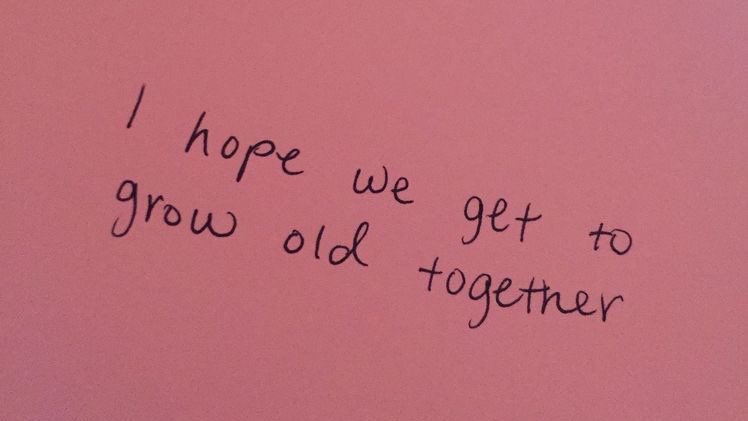 I hope we get to
grow old together